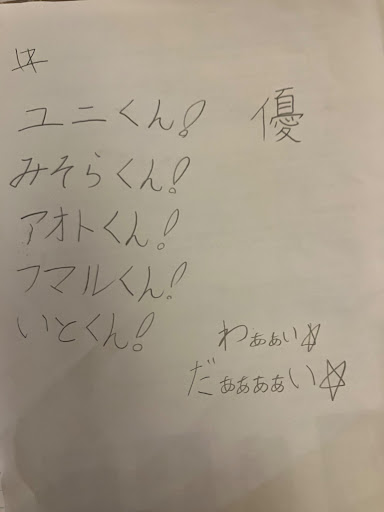 ユニくん! 優
みそらくん!
アオトくん!
フマルくん!
いとくん!
わぁぁい☆
だぁぁぁぁい☆